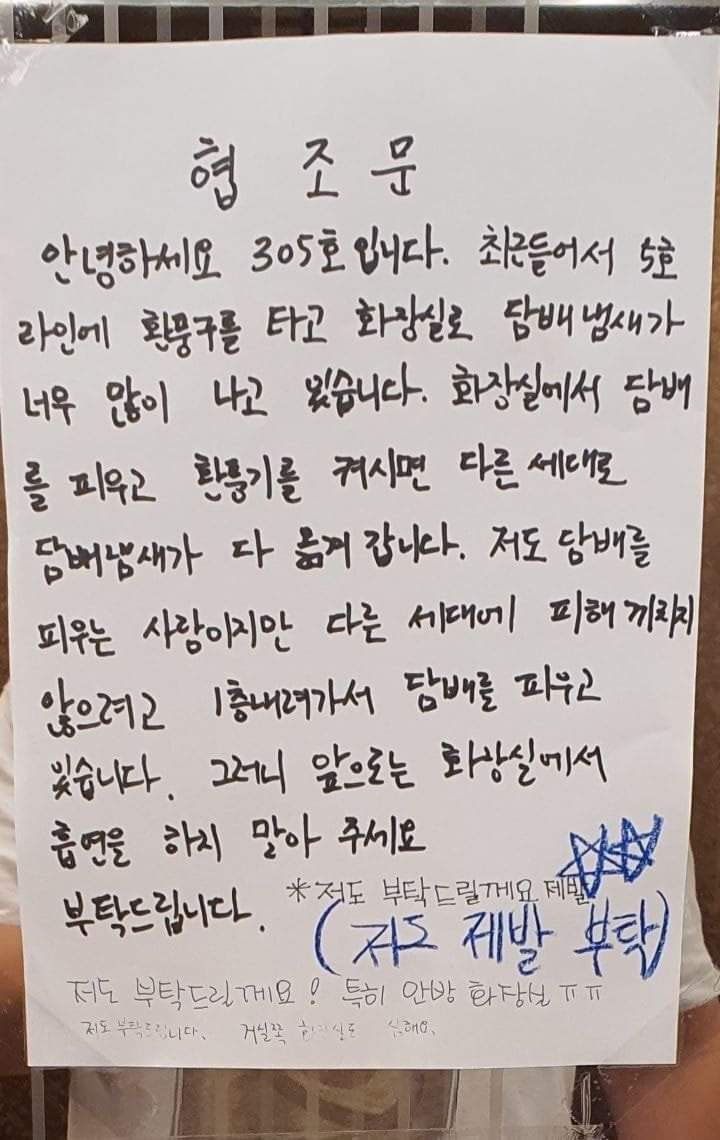 협 조 문
안녕하세요 305호입니다. 최근들어서 5호
라인에 환풍구를 타고 화장실로 담배냄새가
너무 많이 나고 있습니다. 화장실에서 담배
를 피우고 환풍기를 켜시면 다른 세대로
담배냄새가 다 옮겨 갑니다. 저도 담배를
피우는 사람이지만 다른 세대에 피해 끼치지
않으려고 1층내려가서 담배를 피우고
있습니다. 그러니 앞으로는 화장실에서
흡연을 하지 말아 주세요
부탁드립니다.
*저도 부탁드릴께요 제발
(저도 제발 부탁)
저도 부탁드릴께요! 특히 안방 화장실 ㅠㅠ
저도 부탁드립니다. 거실쪽 화장실도 심해요.